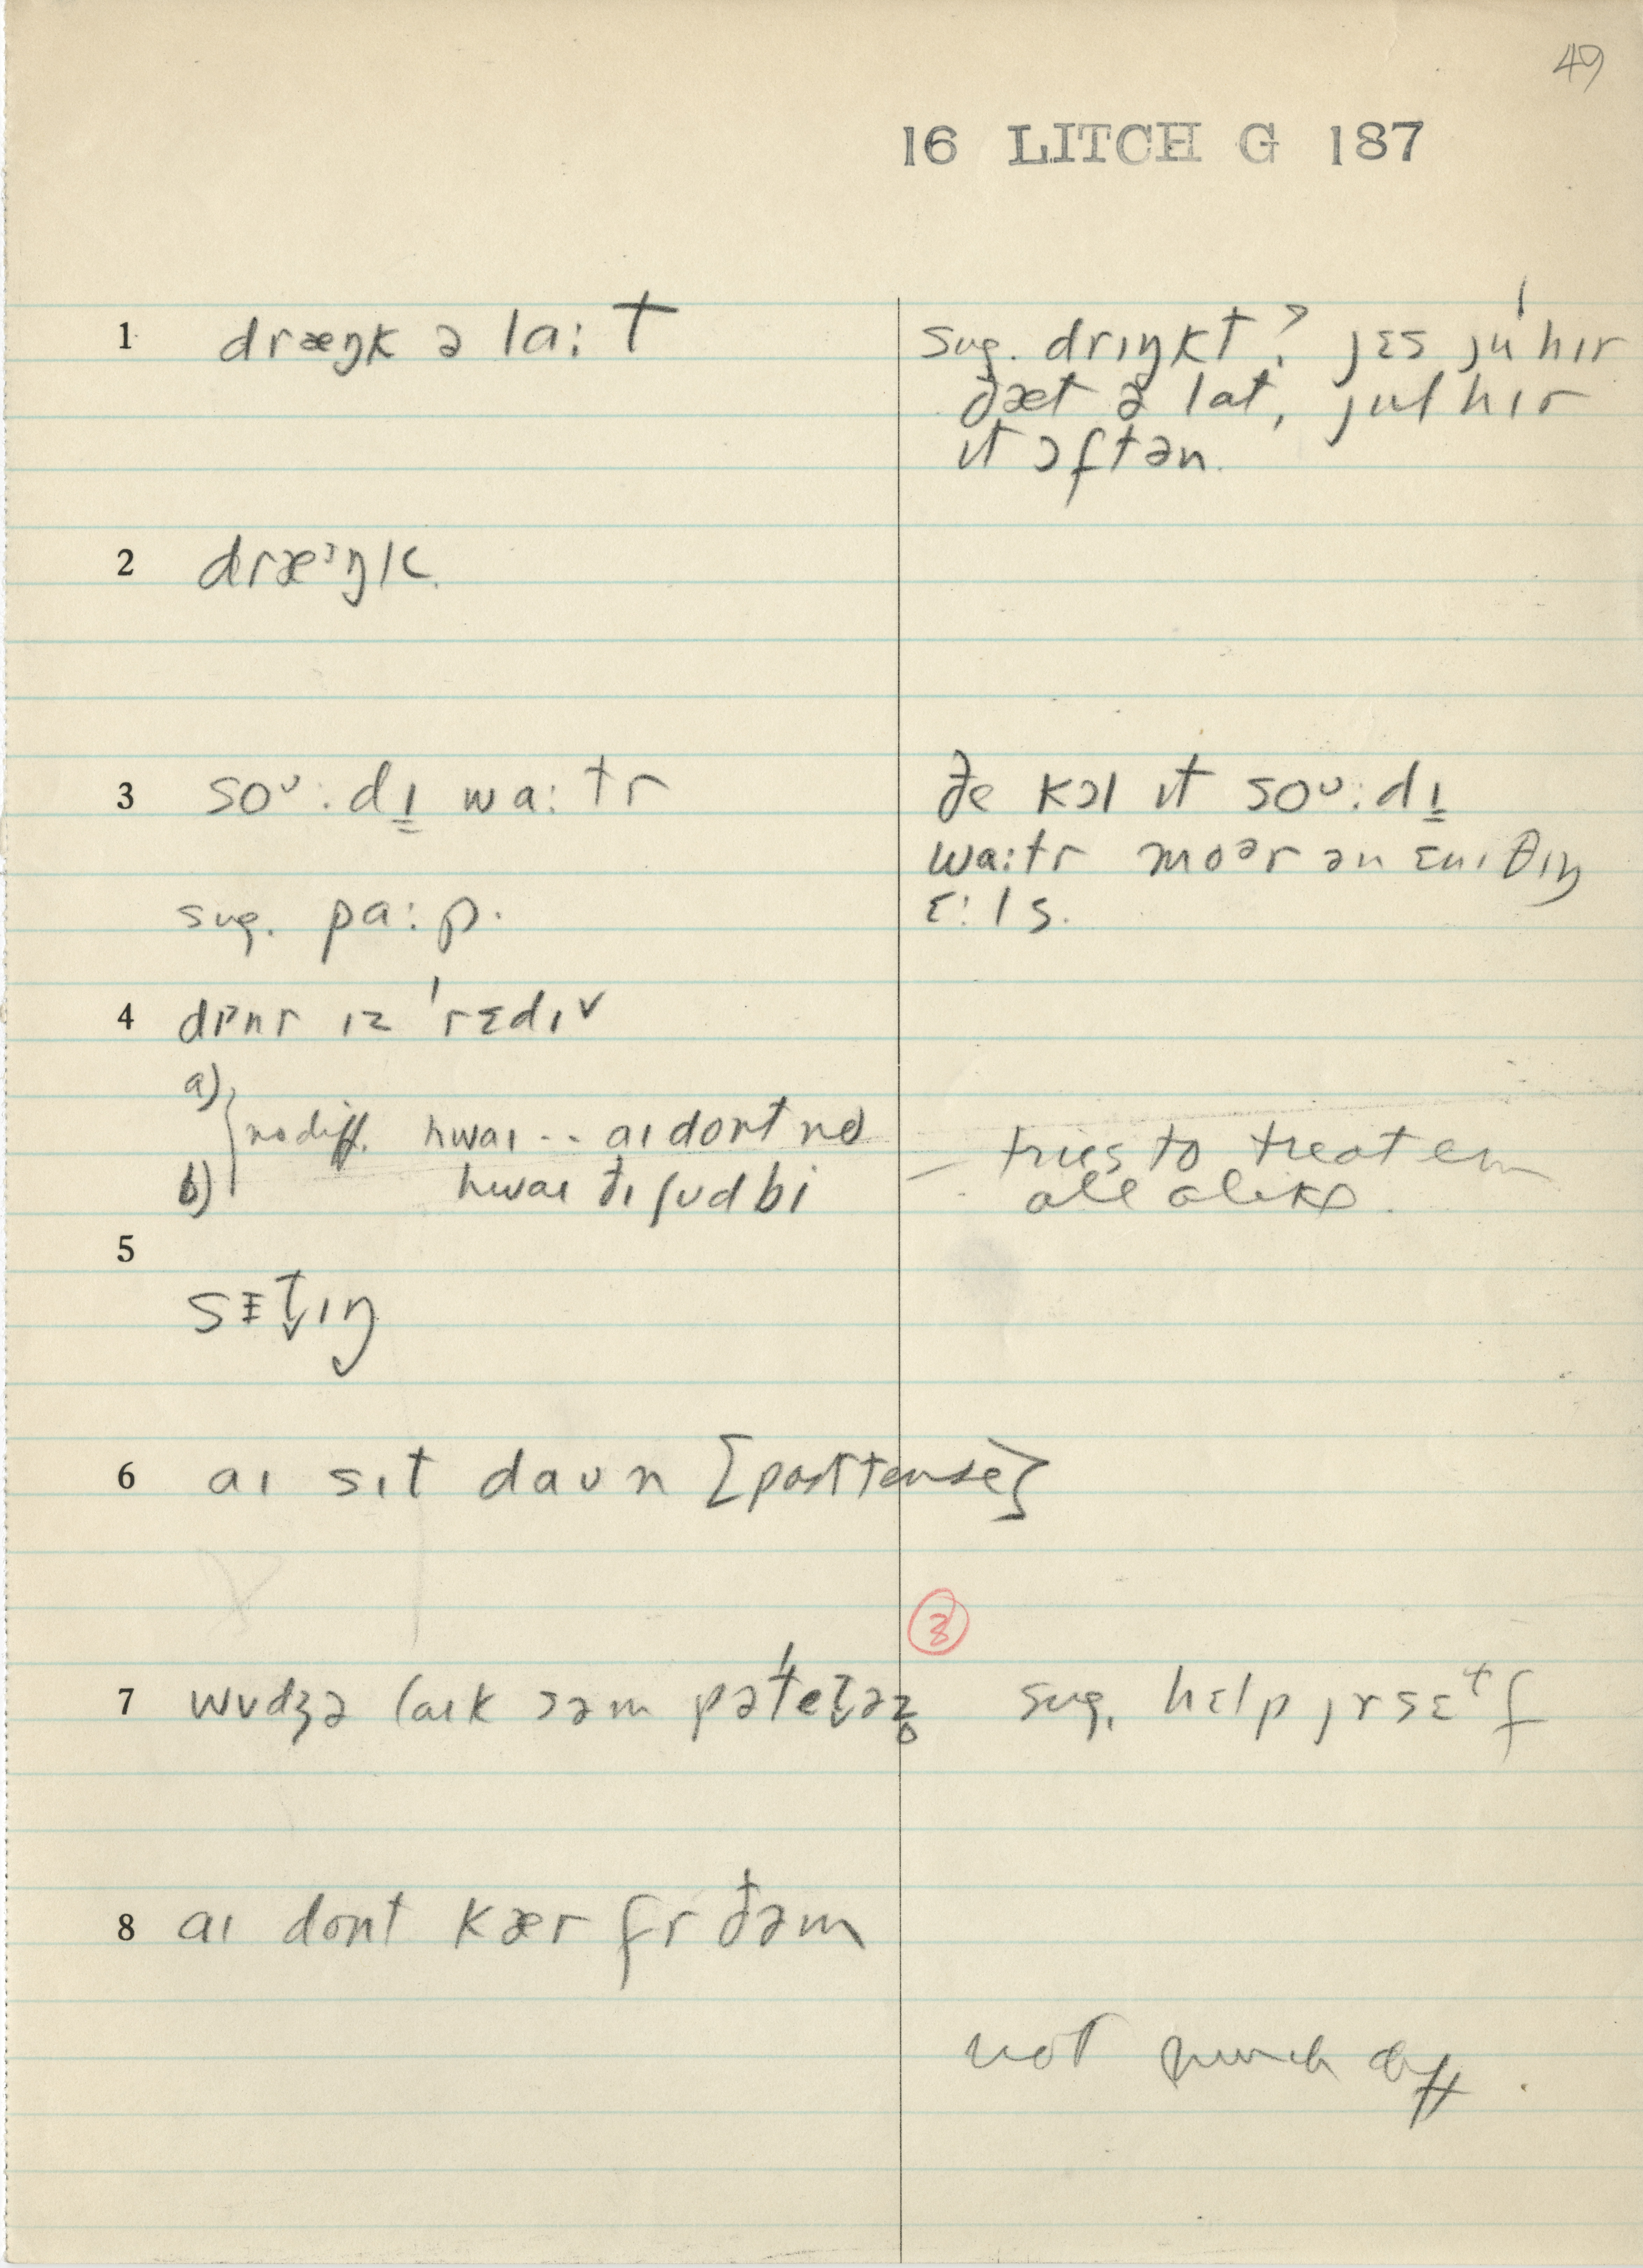 49
16 LITCH G 187
1 dræŋk ə la:t
sug. drɪŋkt? jɛs ju 'hɪr
ðæt ə lat, jul hɪr
ɪt ɔftən.
2 dræᶾŋk
3 soᶷ:dɪ̳ wa:tr
ðe kɔl ɪt soᶷ:dɪ̳
wa:tr moᵊr ən ɛnɪ θɪŋ
ɛ:ls.
sug. pa:p.
4 dɪnr ɪz 'rɛdɪ˅
a)
no diff. hwaɪ -- aɪ dont no
b) hwaɪ ðɪ ʃʊd bi
– tries to treat em
all alike.
5
sɛt̬ɪŋ
6 aɪ sɪt daʊn [past tense]
3
7 wʊdʒə laɪk səm pə'tet̬əz̥
sug. hɛlp jrsɛɫf
8 aɪ dont kær fr ðəm
not much diff.